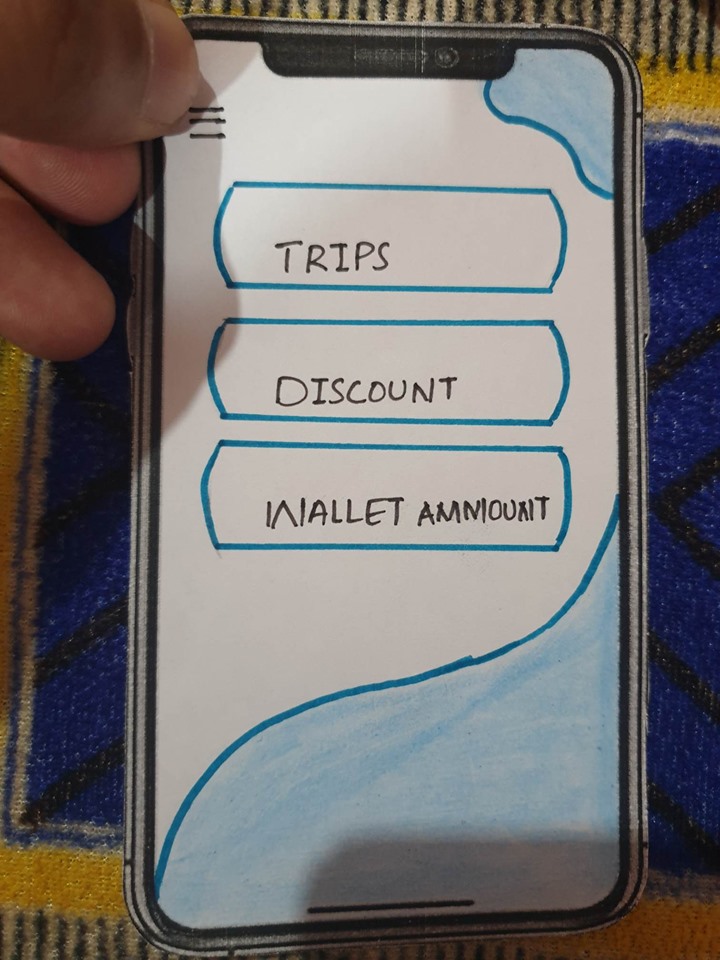 TRIPS
DISCOUNT
WALLET AMMOUNT